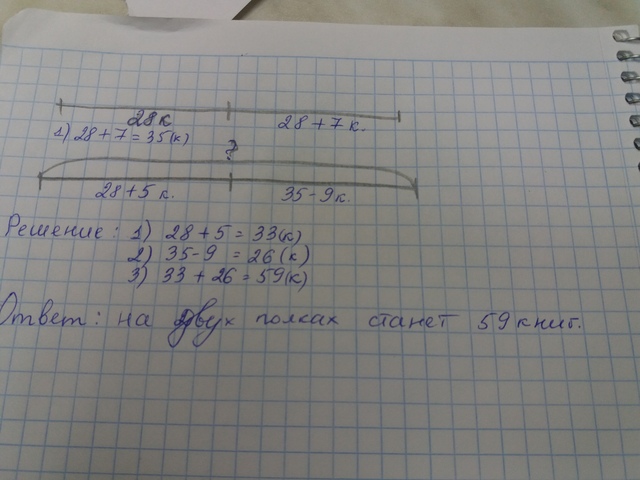 28к 28+7к.
1) 28+7=35(к)
?
28+5к. 35-9к.
Решение: 1) 28+5=33(к)
2) 35-9 =26(к)
3) 33+26=59(к)
Ответ: на двух полках станет 59книг.